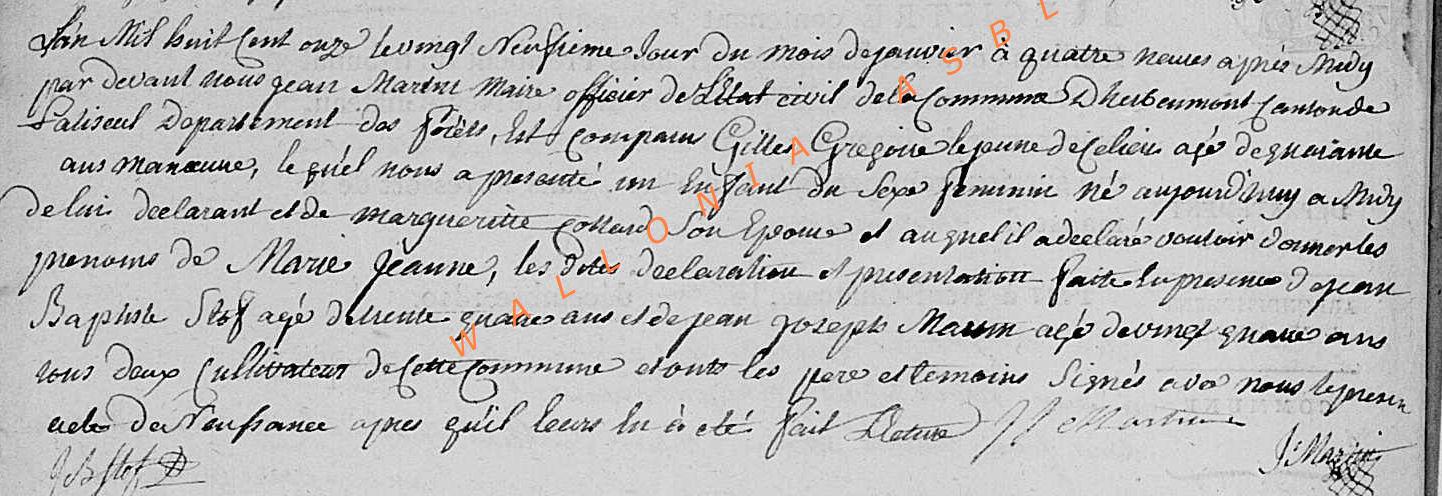 L'an Mil huit Cent onze le vingt Neufsieme Jour du mois de janvier à quatre heures apres Midy
par devant nous jean Martin Maire officier de L'Etat civil de la Commune D'herbeumont Canton de
Paliseul Departement des forêts, Est Comparu Gilles Gregoire le jeune de Celieu agé de quarante
ans manœuvre, le quel nous a presenté un Enfant du Sexe feminin né aujourd'huy a Midy
de lui declarant et de margueritte Collard Son Epouse et auquel il a declaré vouloir donner les
prenoms de Marie Jeanne, les dites declaration et presentation faite en presence de jean
Baptiste Stof agé de trente quatre ans et de jean joseph Martin agé de vingt quatre ans
tous deux Cultivateur de Cette Commune et onts les pere et temoins Signés avec nous le present
acte de Naissance apres qu'il leurs en à eté fait Lecture JJ Martin
J B Stof J Martin
WALLONIA ASBL